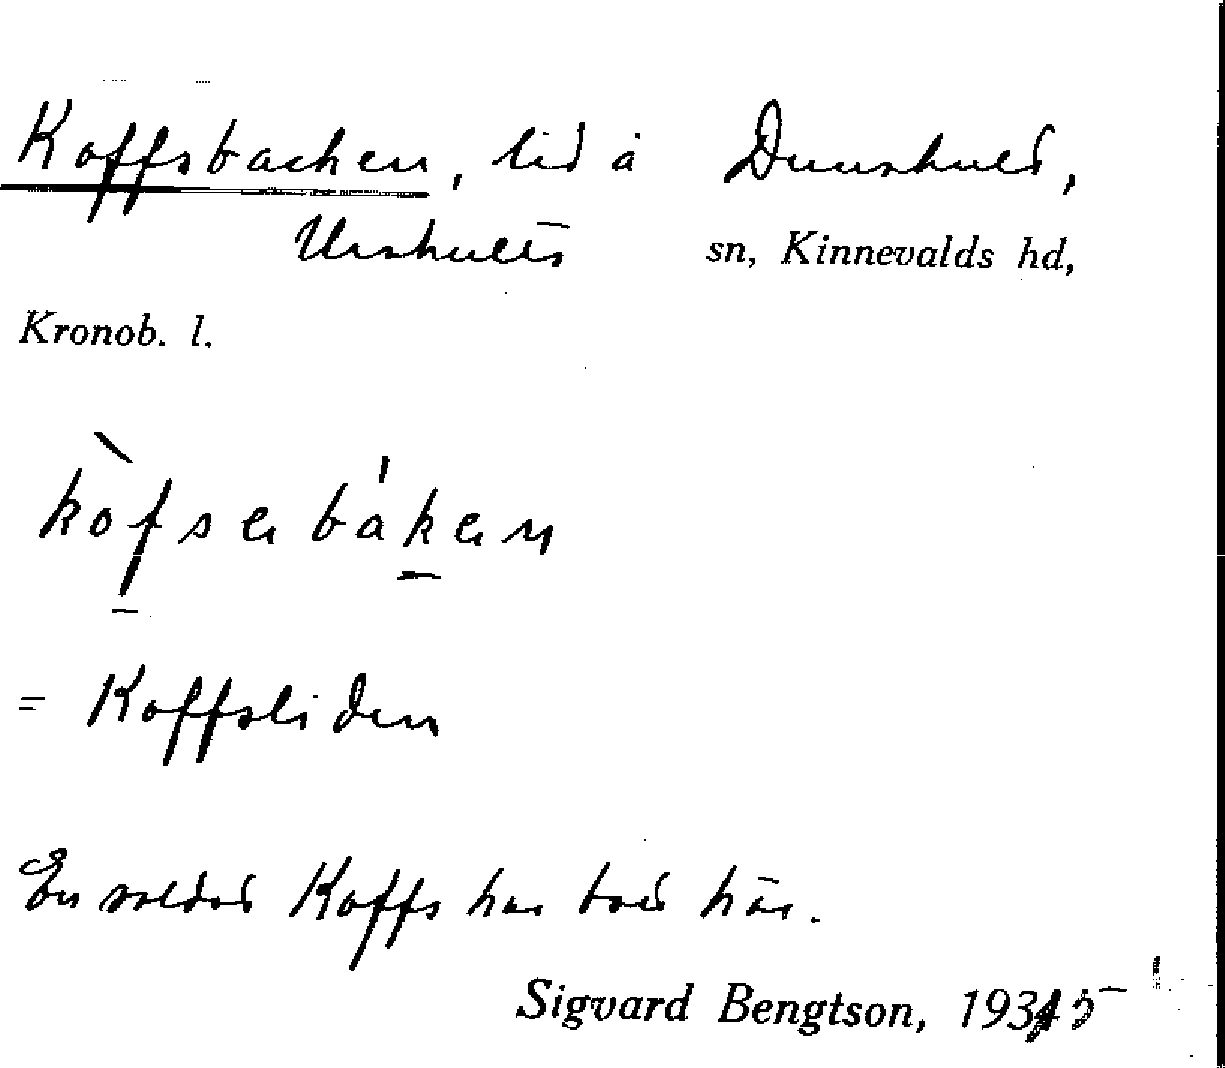 Koffsbacken, lid å Dunshult,
Urshults sn, Kinnevalds hd,
Kronob. l.
= Koffsliden
En soldat Koffs har bott här.
Sigvard Bengtson, 1935